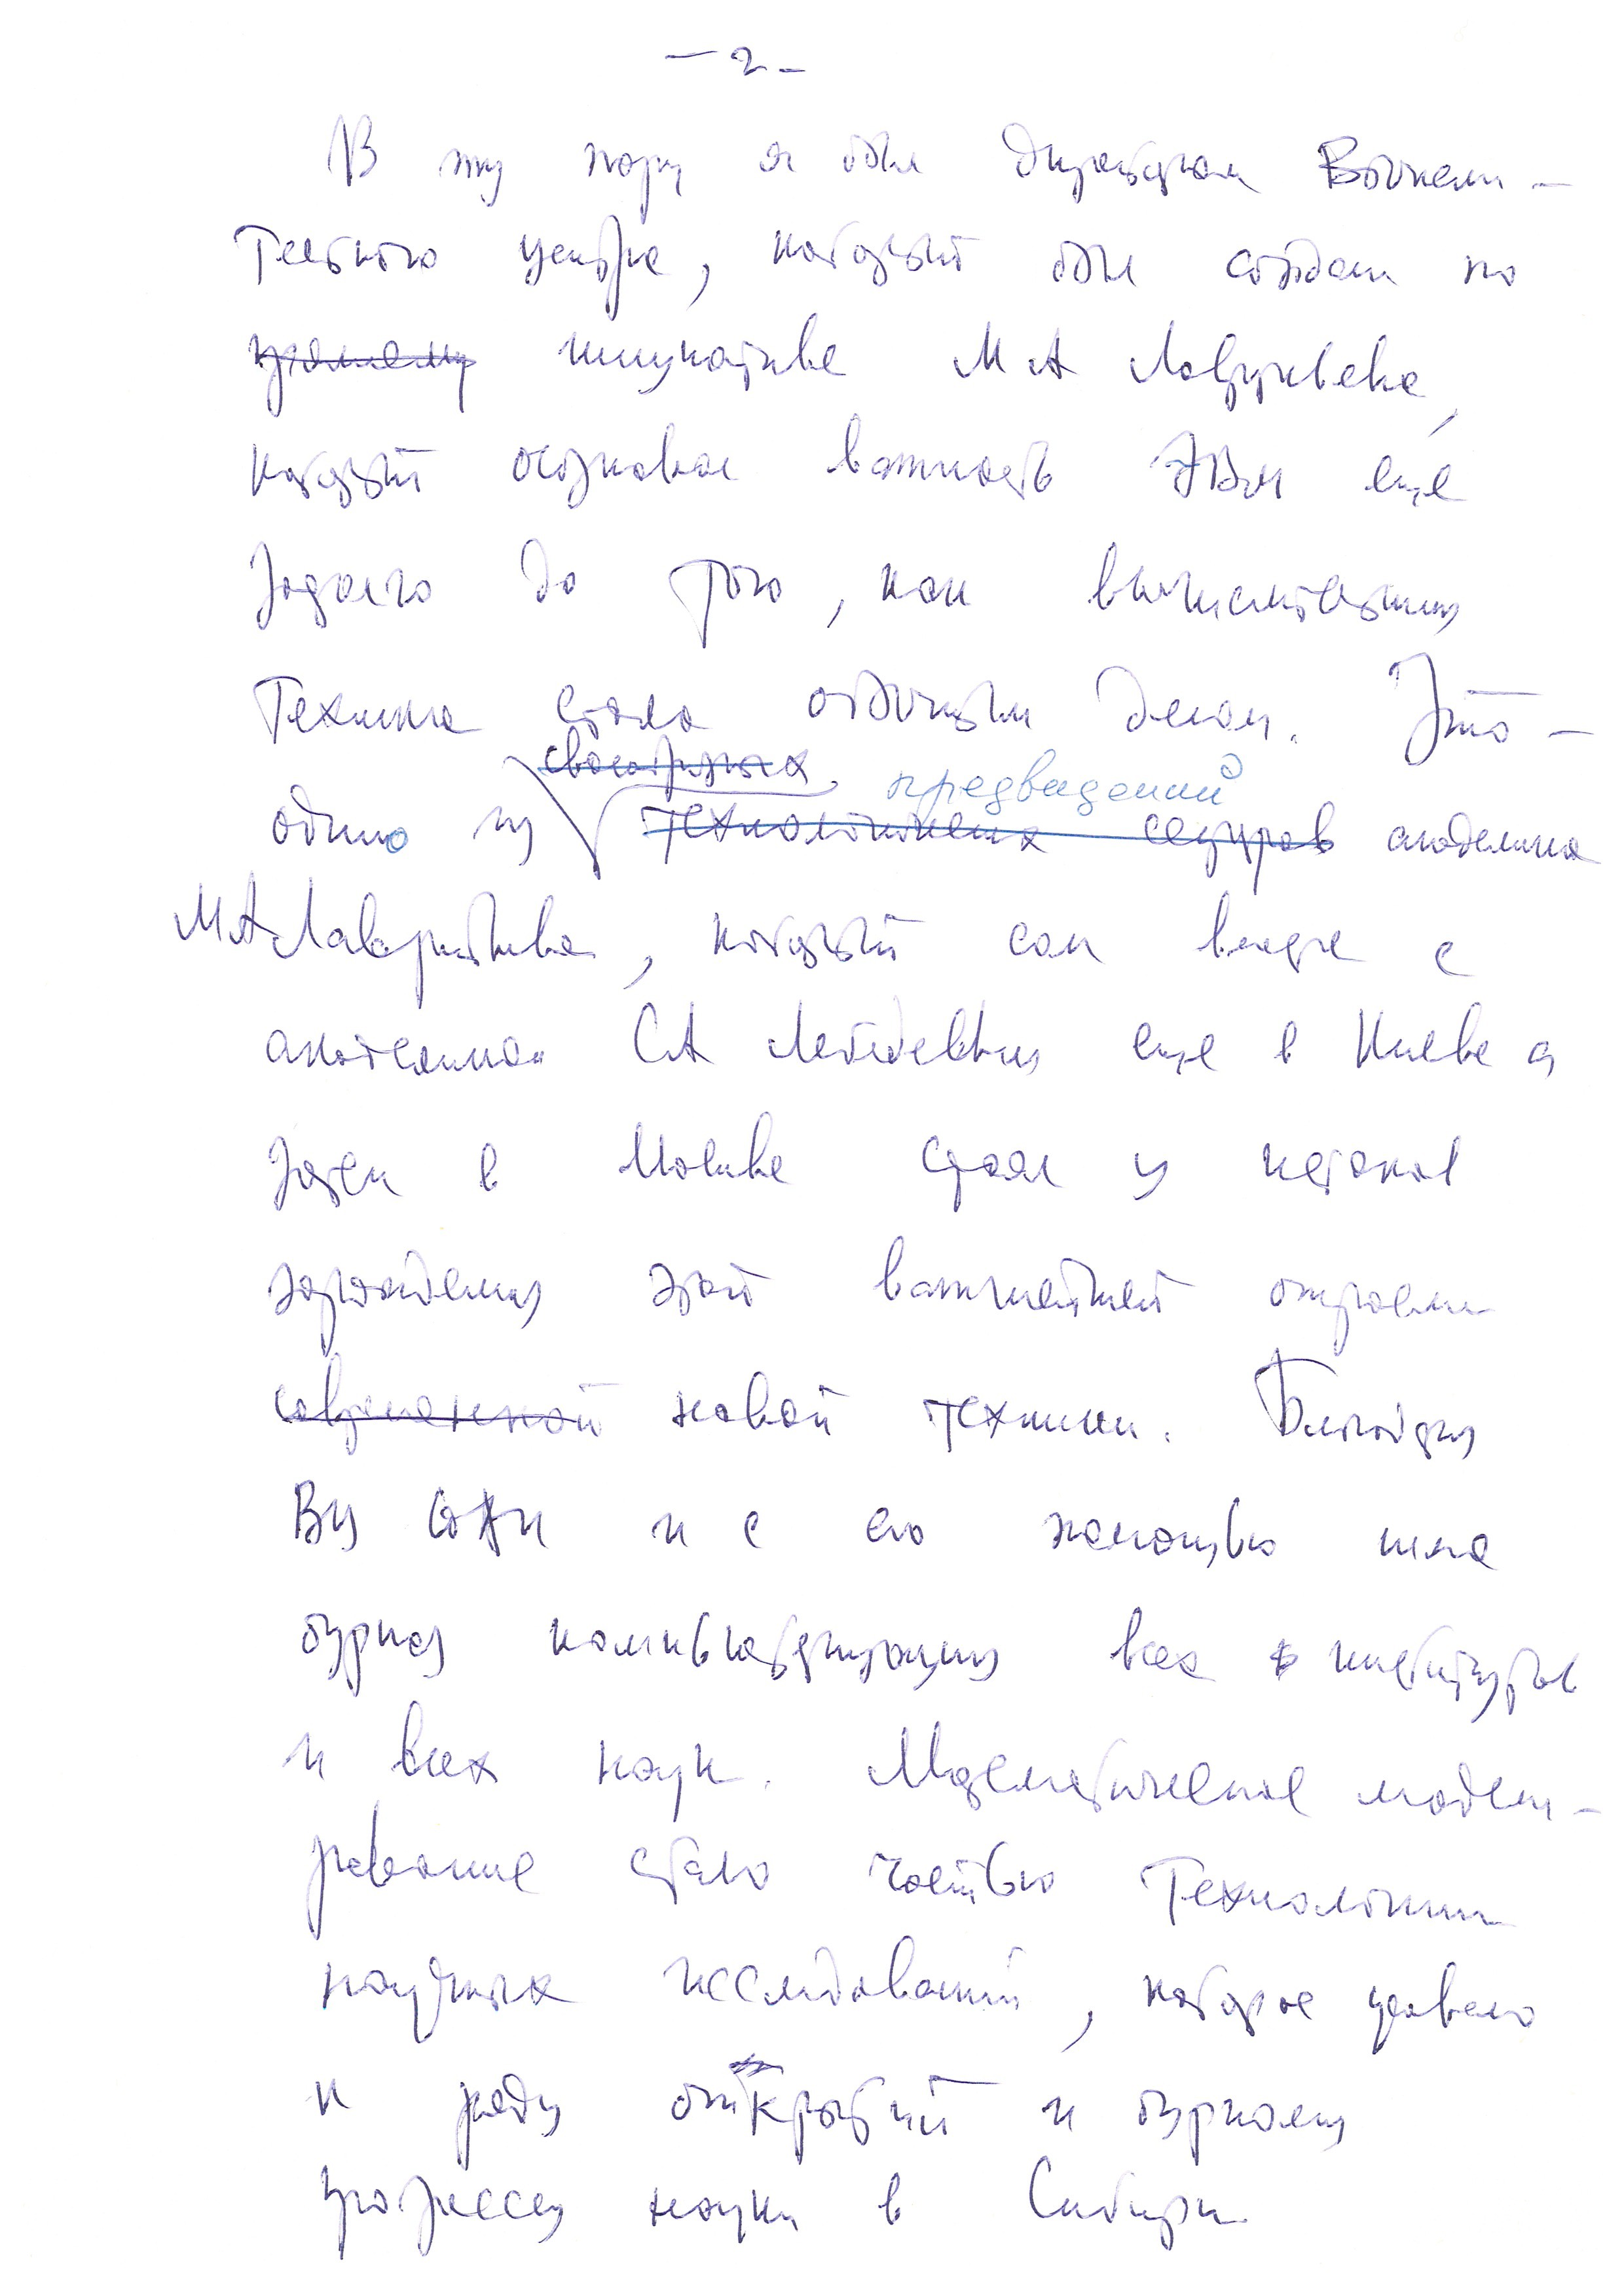 – 2 –
В ту пору я был директором Вычисли-
тельного центра, который был создан по
инициативе М А Лаврентьева,
который осознавал важность ЭВМ ещё
задолго до того, как вычислительная
техника стала обычным делом. Это –
своеобразных предвидений
одно из технологических академика
М А Лаврентьева, который сам вместе с
академиком С А Лебедевым еще в Киеве а
затем в Москве стоял у истоков
зарождения этой важнейшей отрасли
современной новой техники. Благодаря
ВЦ СОАН и с его помощью шла
бурная компьютеризация всех институтов
и всех наук. Математическое модели-
рование стало частью технологии
научных исследований, которое привело
к ряду открытий и бурному
прогрессу науки в Сибири.